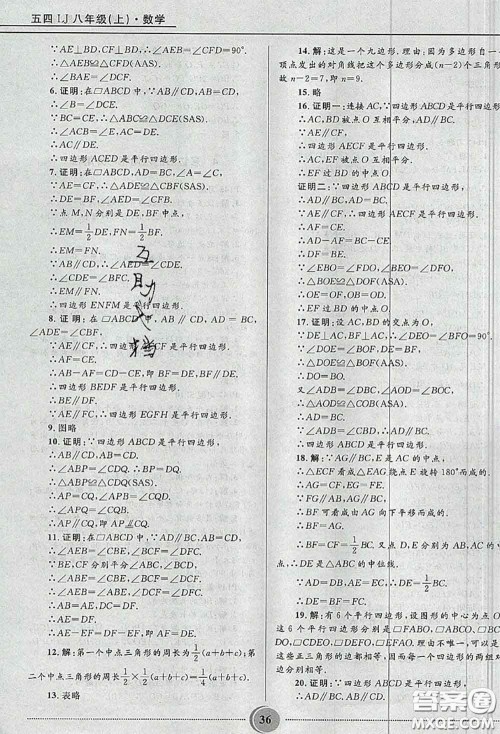 五四 LJ 八年级(上)·数学
∵AE⊥BD,CF⊥BD,∴∠AEB=∠CFD=90°.
∴△AEB≌△CFD(AAS).
∴∠BAE=∠DCF.
6. 证明:在□ABCD 中,∵AB∥CD,AB=CD,
∴∠ABC=∠DCE.
∵BC=CE,∴△ABC≌△DCE(SAS).
∴AC∥DE.
∴四边形 ACED 是平行四边形.
7. 证明:在□ABCD 中,∵AD=BC,∠A=∠C,
∵AE=CF,∴△ADE≌△CBF(SAS).
∴DE=BF,∠AED=∠CFB.
∵点 M,N 分别是 DE,BF 中点,
∴EM=1/2DE,FN=1/2BF.
∴EM=FN.
∵AB∥CD,∴∠AED=∠CDE.
∴∠CDE=∠BFC.
∴EM∥FN.
∴四边形 ENFM 是平行四边形.
8. 证明:在□ABCD中,∵AB∥CD, AD = BC,
∠ADE=∠CBF,
∵AE∥CF,∴四边形 AECF 是平行四边形.
∴AF=CE.
∴AB-AF=CD-CE,即 BF=DE.
∴四边形 BEDF 是平行四边形.
∵AE∥FC,∴四边形 EGFH 是平行四边形.
9. 图略
10. 证明:∵四边形 ABCD 是平行四边形,
∴∠ABP=∠CDQ.∴∠APB=∠CQD.
∴△ABP≌△CDQ.
∴AP=CQ,∠APQ=∠CQP.
∴AP∥CQ.
∴四边形 APCQ 是平行四边形.
11. 证明:在□ABCD 中,∵AD∥BC,AB∥CD,
∴∠AEB=∠CBE,∠BCF=∠DFC.
∵BE,CF 分别平分∠ABC,∠BCD,
∴∠ABE=∠CBE,∠BCF=∠DCF.
∴∠AEB=∠ABE,∠DFC=∠DCF.
∴AB=AE,DC=DF.
∴AE=DF.
∴AE-EF=DF-EF,即 AF=DE.
12. 解:第一个中点三角形的周长为1/2(a+b+c);第
二个中点三角形的周长为1/2×1/2(a+b+c)=1/4(a+b+c).
13. 表略
互助文档
14. 解:这是一个九边形.理由:因为从 n 边形的一个
顶点发出的对角线把这个多边形分成(n-2)个三角形
故 n-2=7,即 n=9.
15. 略
16. 证明一:连接 AC,∵四边形 ABCD 是平行四边形,
∴AC,BD 被点 O 互相平分,AD∥BC.
∵AE∥CF,
∴四边形 AECF 是平行四边形.
∴AC,EF 被点 O 互相平分.
∴EF 过 BD 的中点 O.
证明二:∵四边形 ABCD 是平行四边形,
∴AD∥BC.
∵AE∥CF,∴四边形 AECF 是平行四边形.
∴AE=CF.
∴AD-AE=BC-CF.
即 DE=BF.
∵∠EBO=∠FDO,∠BEO=∠DFO,
∴△BEO≌△DFO(ASA).
∴EF 过 BD 的中点 O.
17. 证明:设 AC,BD 的交点为 O,
∵DE⊥AC,BF⊥AC,∴∠DEO=∠BFO=90°.
∵DE=BF,∠DOE=∠BOF,
∴△DEO≌△BFO(AAS).
∴OD=OB.
又∵AD∥BC,∴∠OAD=∠OCB.
∵∠AOD=∠COB,
∴△AOD≌△COB(AAS).
∴AD=BC.
∵AD∥BC,
∴四边形 ABCD 是平行四边形.
18. 解:∵AG∥BF,E 是 AC 的中点,
∴△ECF 看成△EAG 绕点 E 旋转 180°而成的.
∴AG=CF,EG=EF.
∵FG∥AB,∴四边形 ABFG 是平行四边形.
∴BF 可看成由 AG 向下平移而成的.
∴BF=AG.
∴BF=CF=1/2BC.又 D,E 分别为 AB,AC 中点,
∴DE 是△ABC 的中位线.
∴DE∥BC,DE=1/2BC.
∴DE=BF=CF.
19. 解:有 6 个平行四边形,设图形的中心为点 O
这 6 个平行四边形分别是□FABO,□ABCO,□BCDO,
□CDEO,□DEFO,□EFAO.理由为:因为拼图时,
这些正三角形的边都相等,因此每一个四边形的两组对
边分别相等.
20. 证明:∵四边形 ABCD 是平行四边形,
∴AD∥BC,
36
答案圈
MXQE.COM